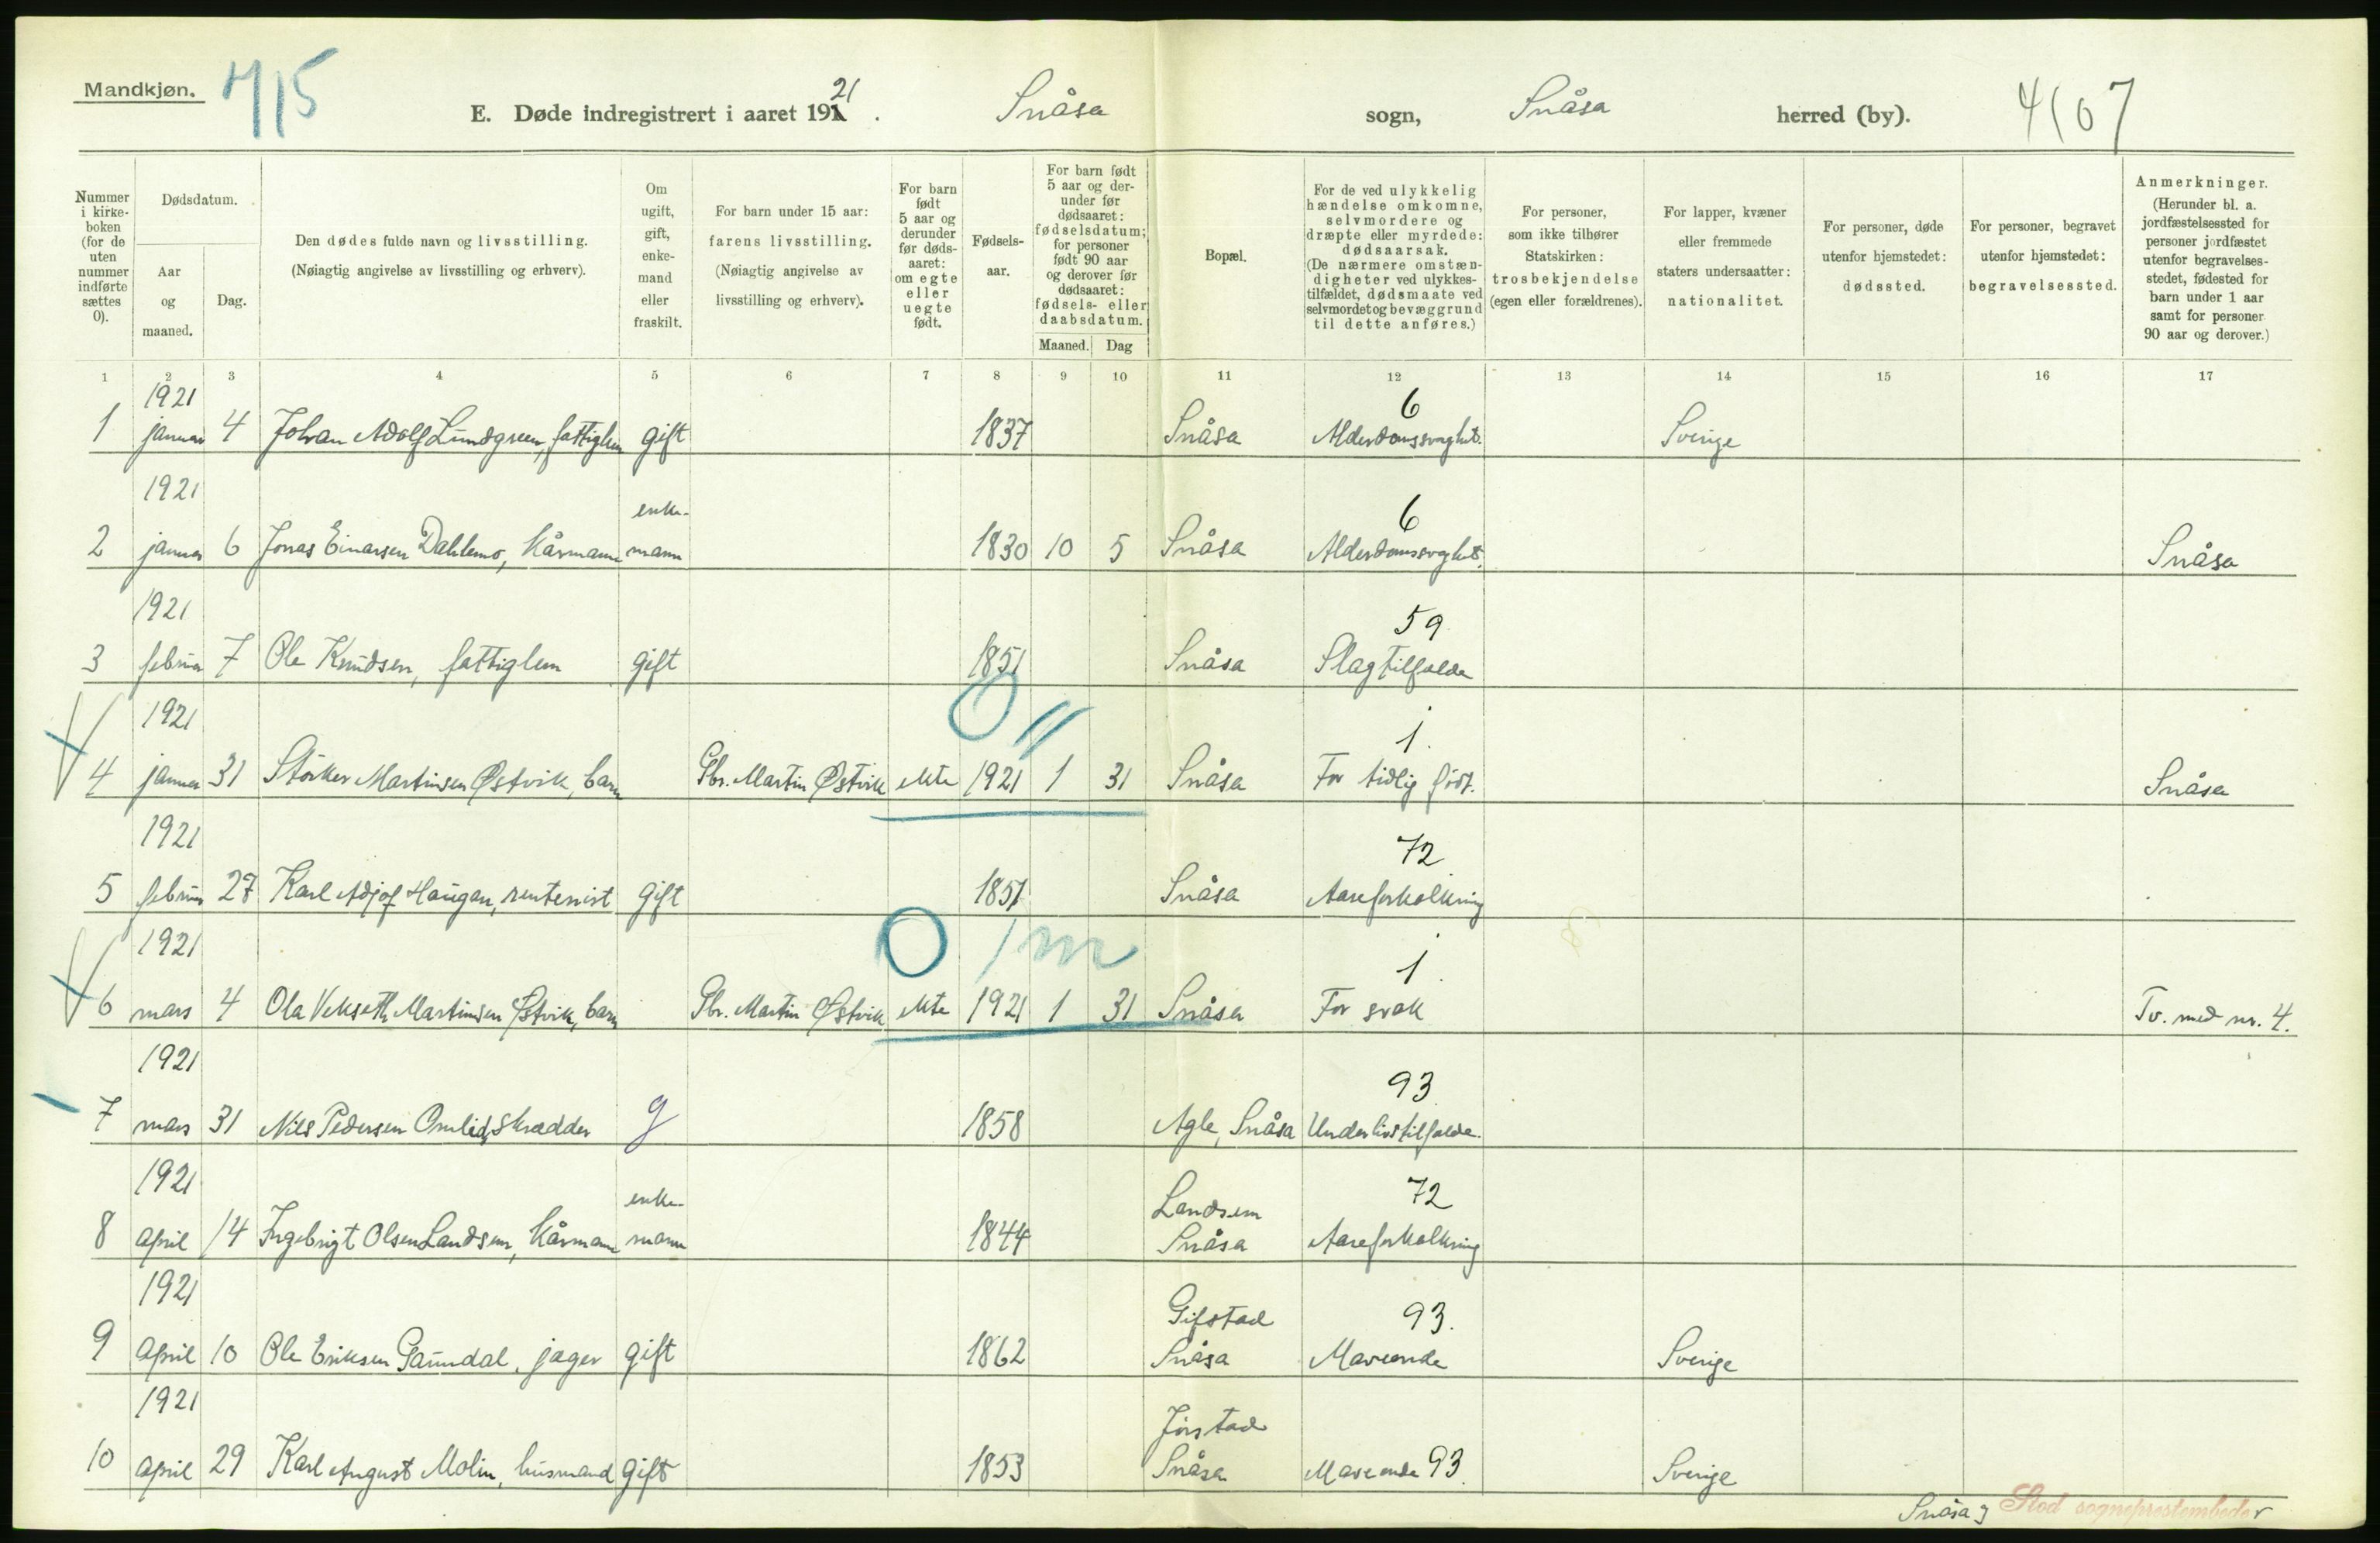 Mandkjøn. 7/5
E. Døde indregistrert i aaret 1921. Snåsa sogn, Snåsa herred (by). 4107
Nummer i kirkeboken (for de uten nummer indførte sættes 0).
Dødsdatum.
Aar og maaned.
Dag.
Den dødes fulde navn og livsstilling.
(Nøiagtig angivelse av livsstilling og erhverv).
Om ugift, gift, enkemand eller fraskilt.
For barn under 15 aar: farens livsstilling.
(Nøiagtig angivelse av livsstilling og erhverv).
For barn født 5 aar og derunder før dødsaaret: om egte eller uegte født.
Fødselsaar.
For barn født 5 aar og derunder før dødsaaret: fødselsdatum; for personer født 90 aar og derover før dødsaaret: fødsels- eller daabsdatum.
Maaned. Dag
Bopæl.
For de ved ulykkelig hændelse omkomne, selvmordere og dræpte eller myrdede: dødsaarsak.
(De nærmere omstændigheter ved ulykkestilfældet, dødsmaate ved selvmordet og bevæggrund til dette anføres.)
For personer, som ikke tilhører Statskirken: trosbekjendelse (egen eller forældrenes).
For lapper, kvæner eller fremmede staters undersaatter: nationalitet.
For personer, døde utenfor hjemstedet: dødssted.
For personer, begravet utenfor hjemstedet: begravelsessted.
Anmerkninger.
(Herunder bl. a. jordfæstelsessted for personer jordfæstet utenfor begravelsesstedet, fødested for barn under 1 aar samt for personer 90 aar og derover.)
1 2 3 4 5 6 7 8 9 10 11 12 13 14 15 16 17
1921 6
1 januar 4 Johan Adolf Lundgreen, fattiglem gift 1837 Snåsa Alderdomssvaghet. Sverige
1921 enke- 6
2 januar 6 Jonas Einarsen Dahlemo, kårmann mann 1830 10 5 Snåsa Alderdomssvaghet. Snåsa
1921 59
3 februar 7 Ole Knudsen, fattiglem gift 1851 Snåsa Slagtilfælde
1921 1.
4 januar 31 Størker Martinsen Østvik, barn Gbr. Martin Østvik ekte 1921 1 31 Snåsa For tidlig født. Snåsa
1921 72
5 februar 27 Karl Adjof Haugan, rentenist gift 1851 Snåsa Aareforkalkning
1921 1 m 1.
6 mars 4 Ola Vekseth Martinsen Østvik, barn Gbr. Martin Østvik ekte 1921 1 31 Snåsa For svak Tv. med nr. 4.
1921 93
7 mars 31 Nils Pedersen Omlid, skrædder g 1858 Agle, Snåsa Underlivstilfælde.
1921 enke- Landsem 72
8 april 14 Ingebrigt Olsen Landsem, kårmann mann 1844 Snåsa Aareforkalkning
1921 Gifstad 93.
9 april 10 Ole Eriksen Gaundal, jæger gift 1862 Snåsa Maveonde Sverige
1921 Jørstad
10 april 29 Karl August Molin, husmand gift 1853 Snåsa Maveonde 93. Sverige
Snåsa Stod sogneprestembeder